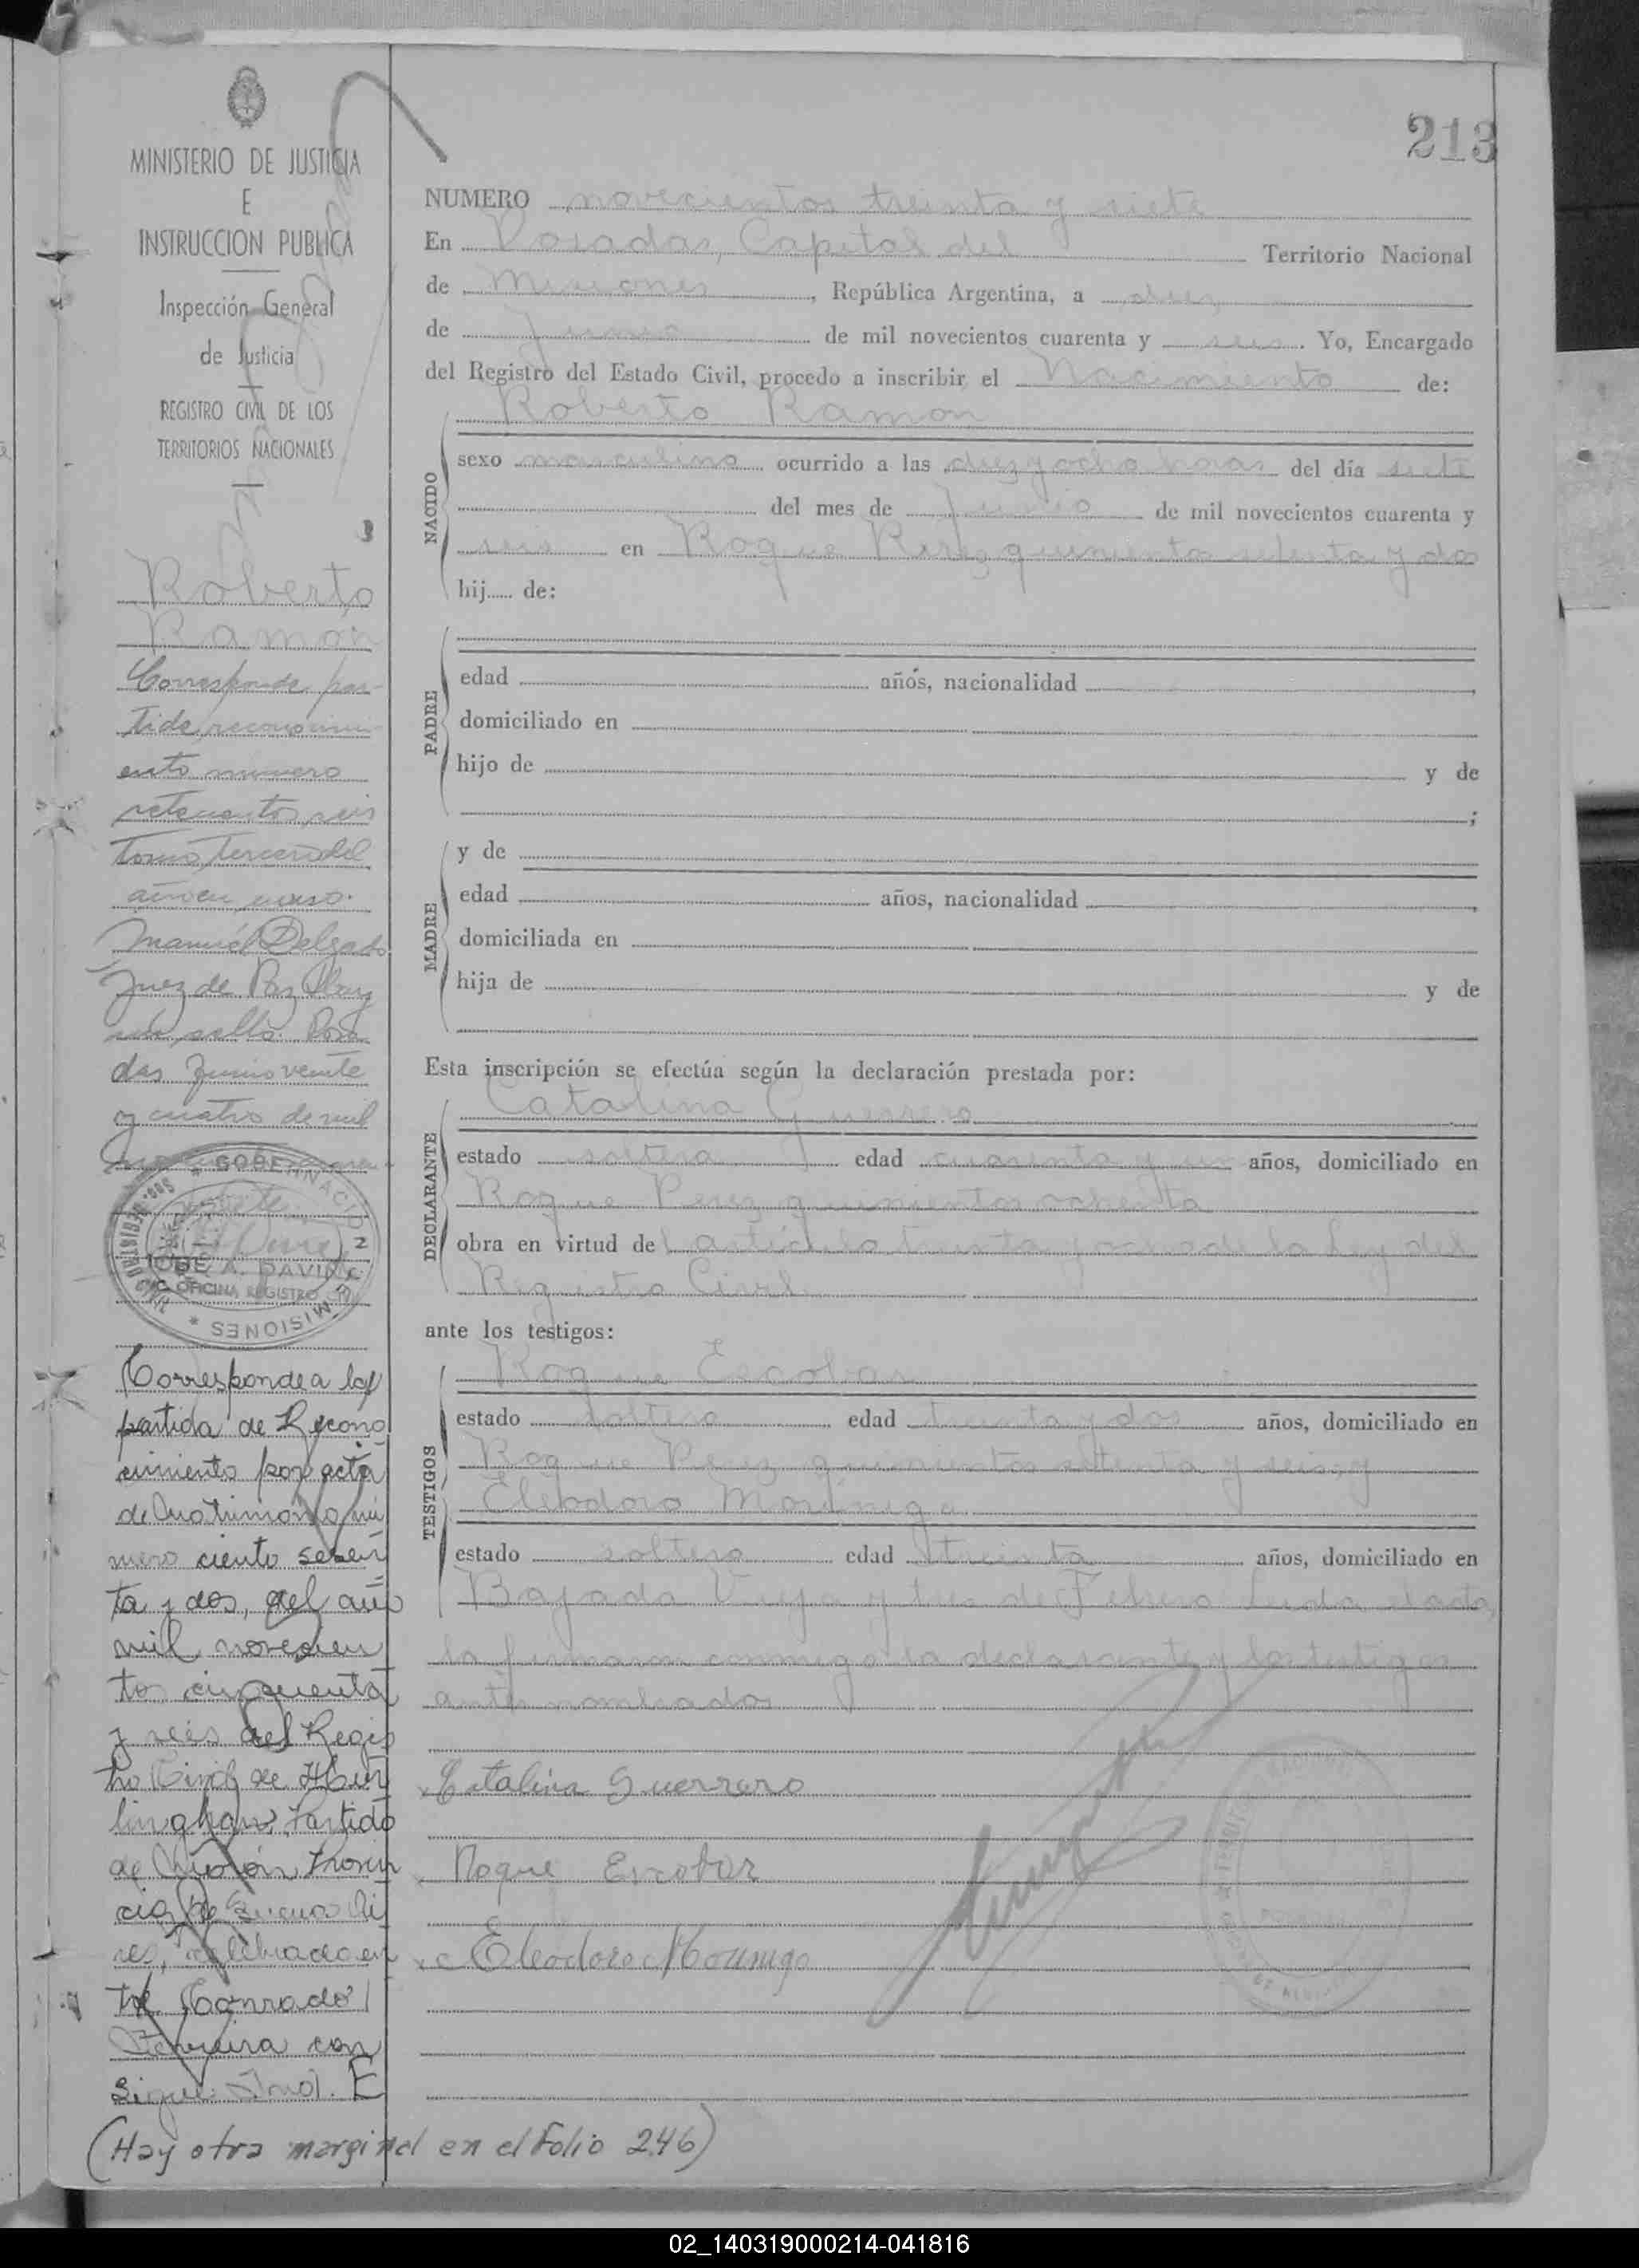 213
MINISTERIO DE JUSTICIA
E
INSTRUCCION PUBLICA
Inspección General
de Justicia
REGISTRO CIVIL DE LOS
TERRITORIOS NACIONALES
Roberto
Ramon
Corresponde par-
tida reconocimi-
ento numero
setecientos seis
Tomo tercero del
año en curso.
Manuel Delgado
Juez de Paz
sello Posa
das Junio veinte
y cuatro de mil
GOBERNACION
MISIONES
JOSE A.
OFICINA REGISTRO
Corresponde a la
partida de Recono
cimiento por acta
de Matrimonio nú
mero ciento seten
ta y dos, del año
mil novecien
tos cincuenta
y seis del Regis
tro Civil de Hur
lingham, Partido
de Morón, Provin
cia de Buenos Ai
res, celebrado en
tre Conrado
con
Sigue
(Hay otra marginal en el folio 246)
NUMERO novecientos treinta y siete
En Posadas, Capital del Territorio Nacional
de Misiones, República Argentina, a diez
de Junio de mil novecientos cuarenta y seis. Yo, Encargado
del Registro del Estado Civil, procedo a inscribir el Nacimiento de:
Roberto Ramon
NACIDO
sexo masculino ocurrido a las diez y ocho horas del día siete
del mes de Junio de mil novecientos cuarenta y
seis en Roque Perez quinientos setenta y dos
hij..... de:
PADRE
edad años, nacionalidad
domiciliado en
hijo de y de
;
MADRE
y de
edad años, nacionalidad
domiciliada en
hija de y de
Esta inscripción se efectúa según la declaración prestada por:
DECLARANTE
Catalina Guerrero
estado soltera edad cuarenta y un años, domiciliado en
Roque Perez quinientos ochenta
obra en virtud del artículo treinta y ocho de la Ley del
Registro Civil
ante los testigos:
TESTIGOS
Roque Escobar
estado soltero edad treinta y dos años, domiciliado en
Roque Perez quinientos setenta y seis, y
Eleodoro Morinigo
estado soltero edad treinta años, domiciliado en
Bajada Vieja y tres de Febrero Leida el acta,
la firmaron conmigo la declarante y los testigos
antes nombrados
Catalina Guerrero
Roque Escobar
Eleodoro Morinigo
02_140319000214-041816